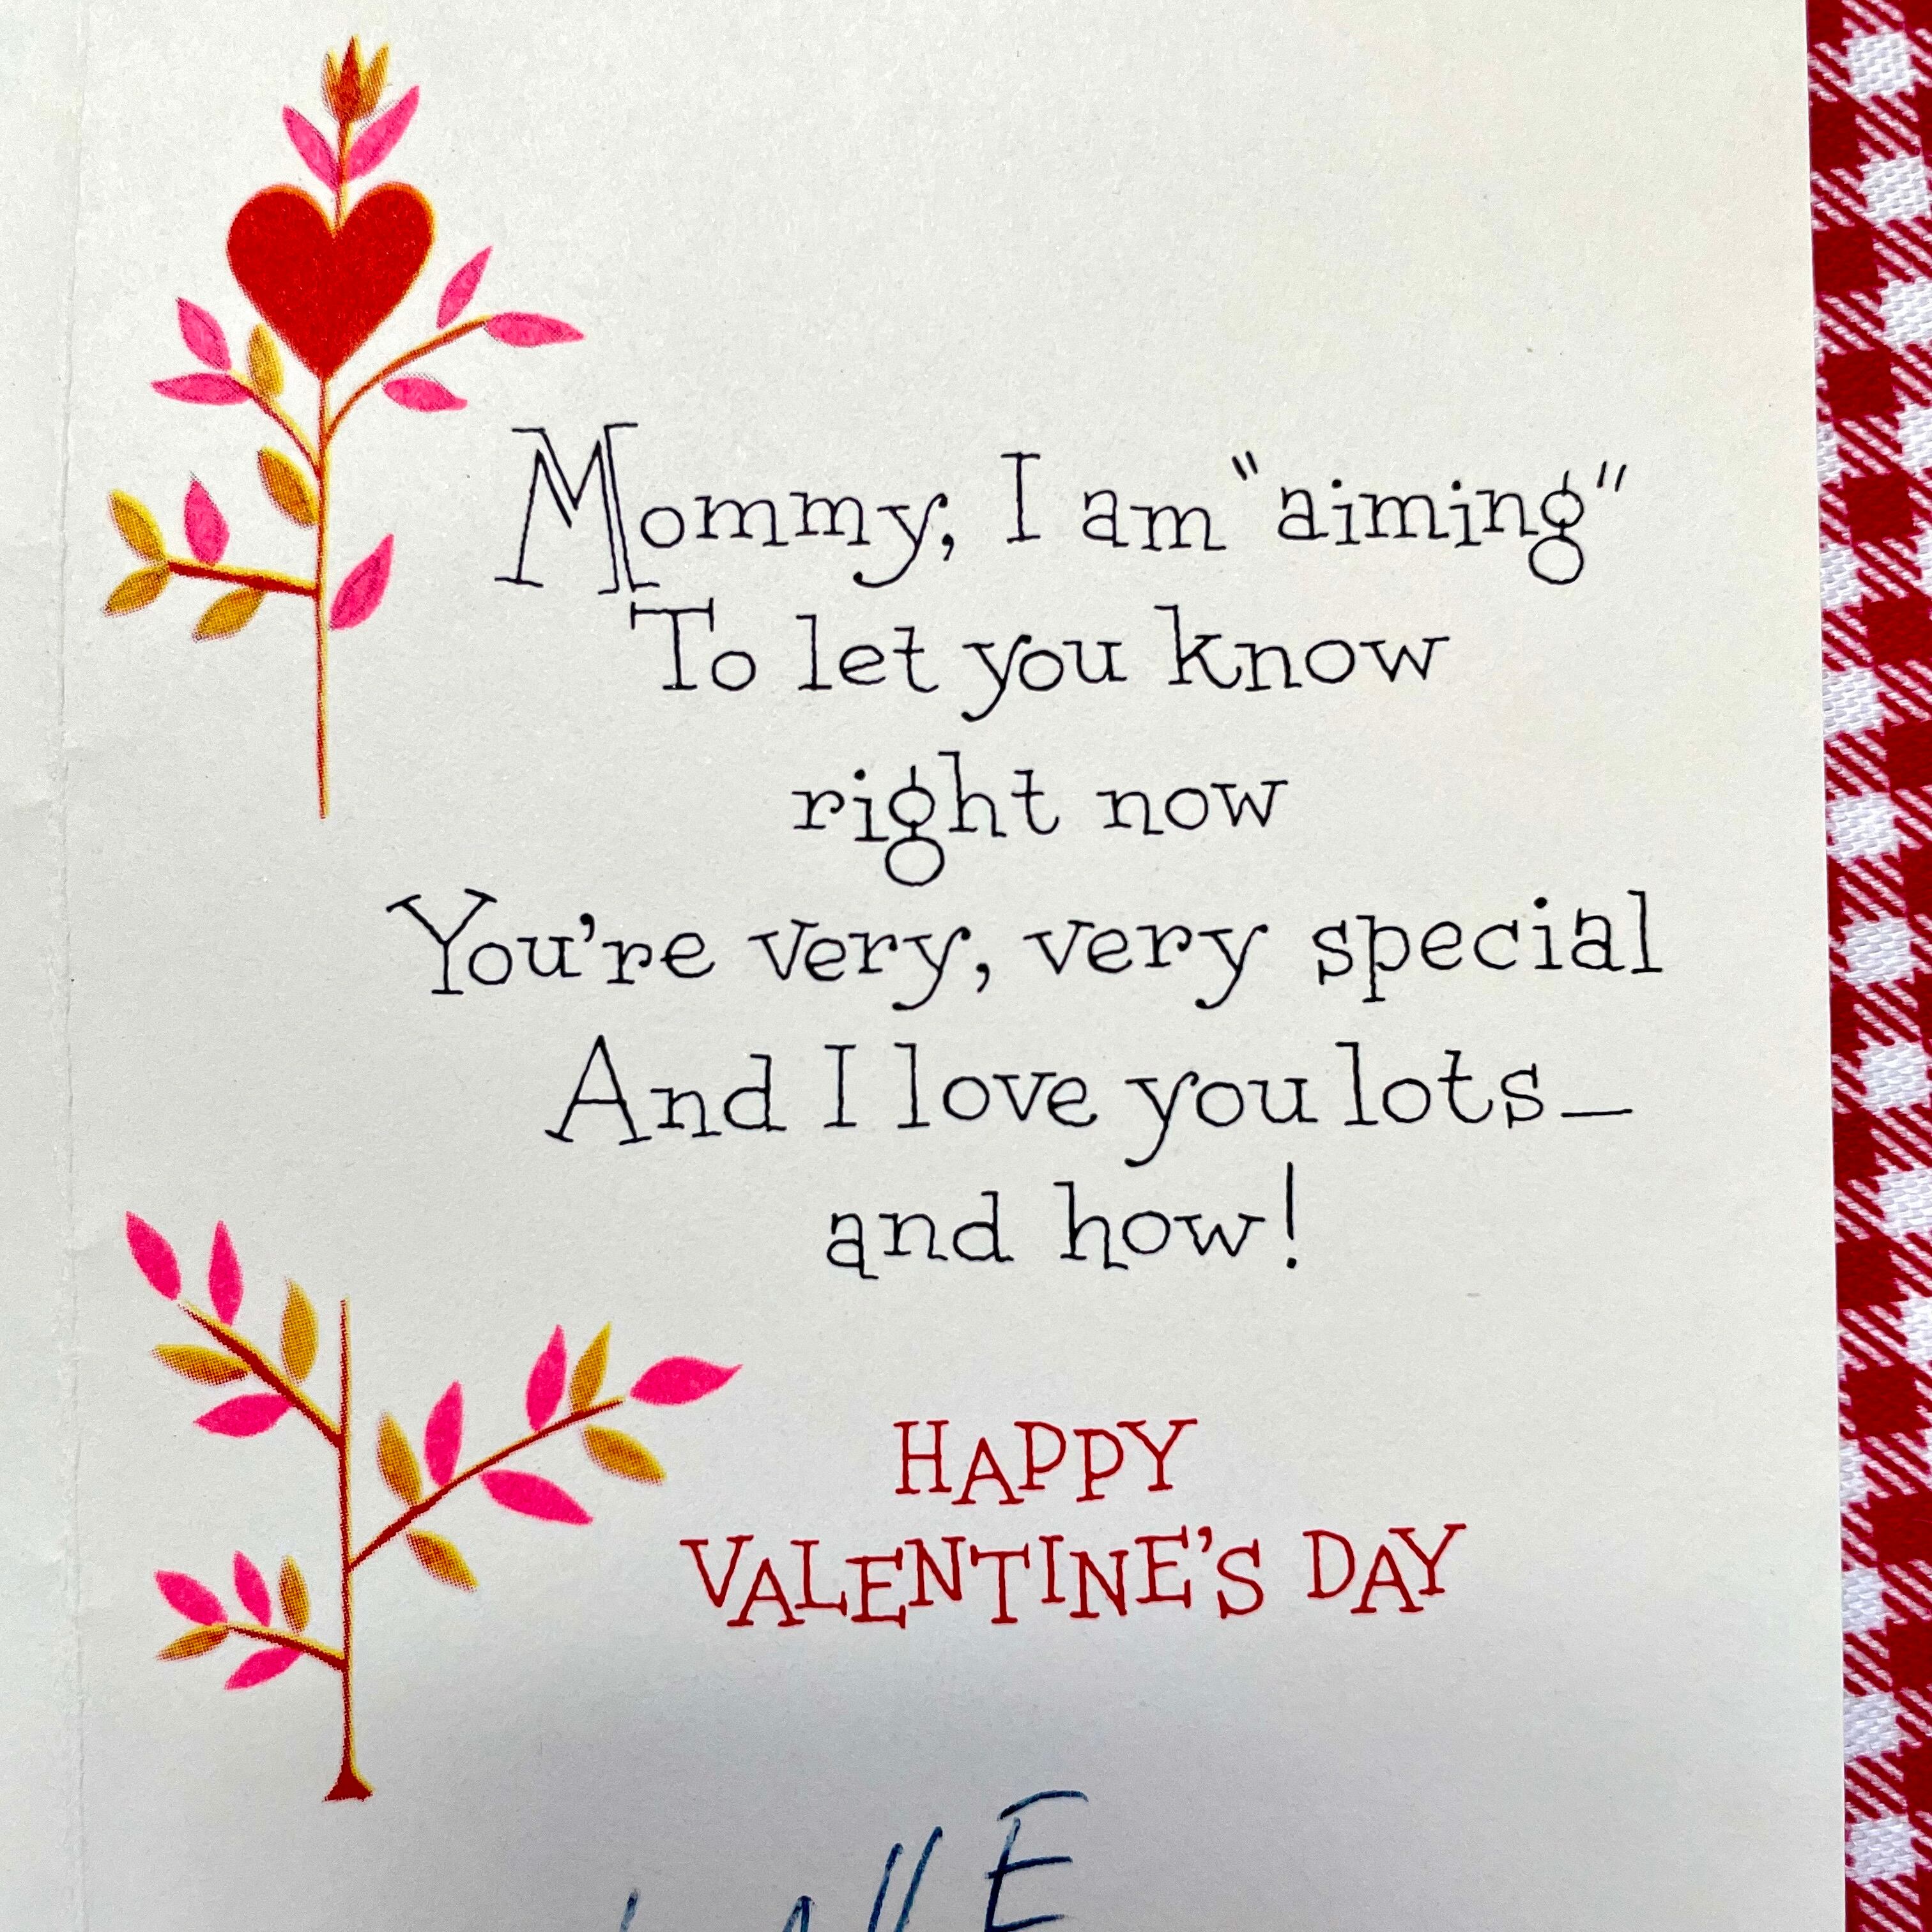 Mommy, I am "aiming"
To let you know
right now
You're very, very special
And I love you lots—
and how!
HAPPY
VALENTINE'S DAY